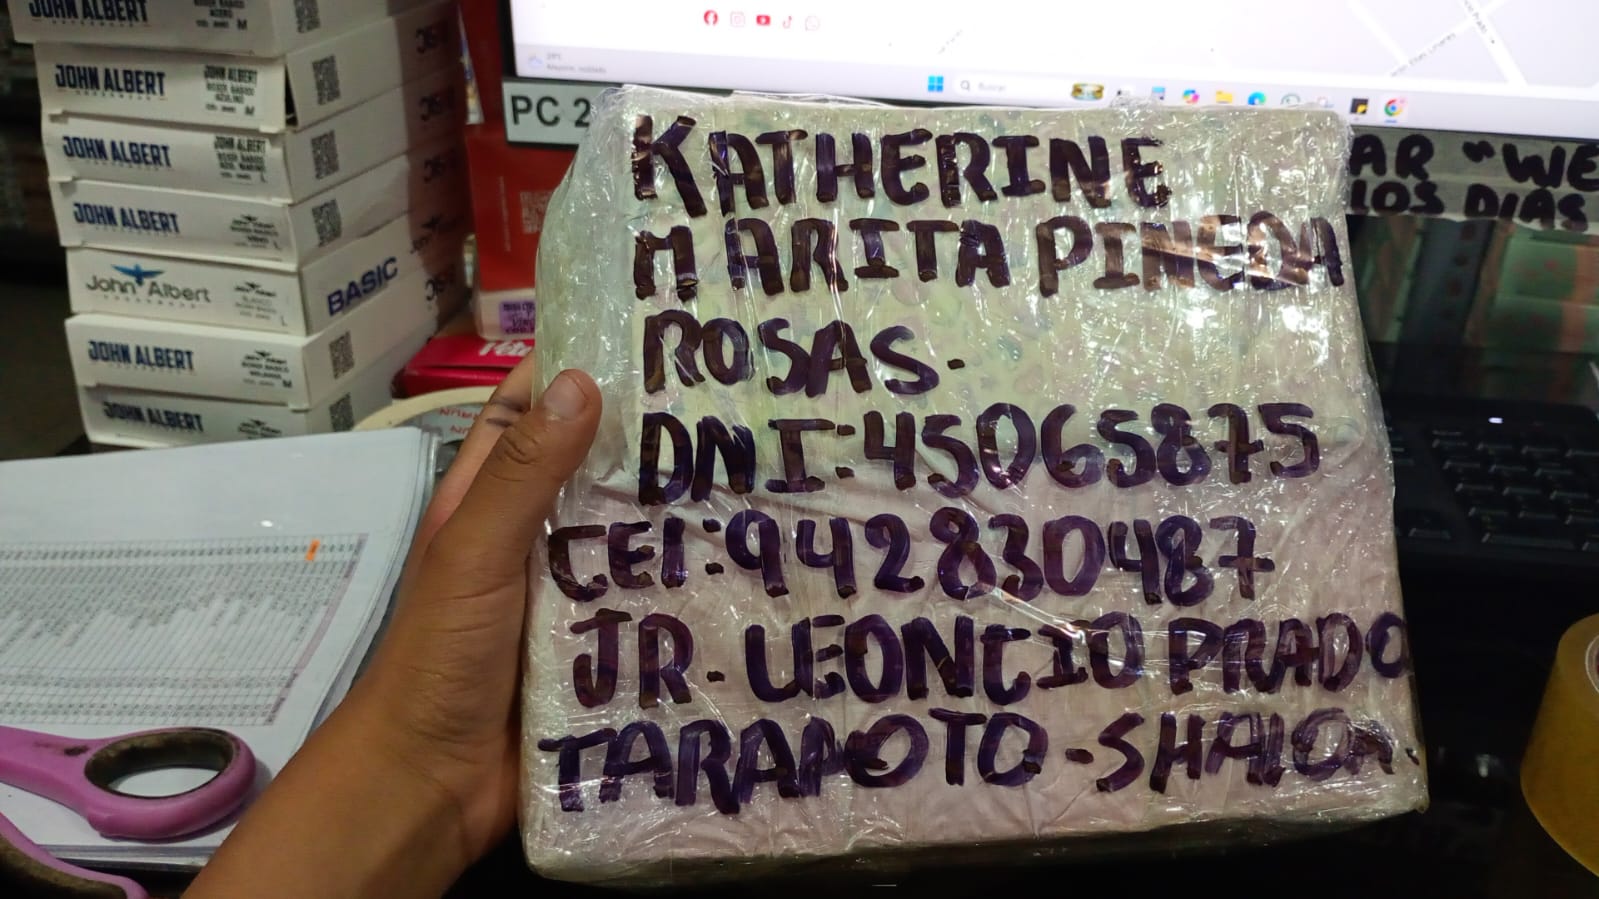 JOHN ALBERT
JOHN ALBERT
JOHN ALBERT
JOHN ALBERT
John Albert
BASIC
JOHN ALBERT
JOHN ALBERT
PC 2
Buscar
KATHERINE
MARITA PINEDA
ROSAS.
DNI:45065875
CEL:942830487
JR. LEONCIO PRADO
TARAPOTO-SHALOM.
AR "WE
LOS DIAS